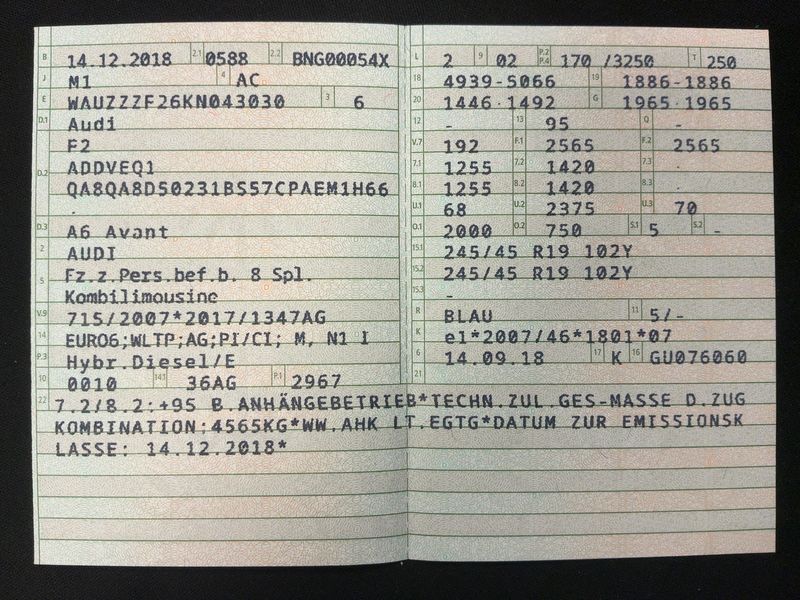 B 14.12.2018 2.1 0588 2.2 BNG00054X
J M1 4 AC
E WAUZZZF26KN043030 3 6
D.1 Audi
F2
D.2 ADDVEQ1
QA8QA8D50231BS57CPAEM1H66
-
D.3 A6 Avant
2 AUDI
5 Fz.z.Pers.bef.b. 8 Spl.
Kombilimousine
V.9 715/2007*2017/1347AG
14 EURO6;WLTP;AG;PI/CI; M, N1 I
P.3 Hybr.Diesel/E
10 0010 14.1 36AG P.1 2967
L 2 9 02 P.2 P.4 170 /3250 T 250
18 4939-5066 19 1886-1886
20 1446-1492 G 1965-1965
12 - 13 95 Q -
V.7 192 F.1 2565 F.2 2565
7.1 1255 7.2 1420 7.3 -
8.1 1255 8.2 1420 8.3 -
U.1 68 U.2 2375 U.3 70
O.1 2000 O.2 750 S.1 5 S.2 -
15.1 245/45 R19 102Y
15.2 245/45 R19 102Y
15.3 -
R BLAU 11 5/-
K e1*2007/46*1801*07
6 14.09.18 17 K 16 GU076060
21
22 7.2/8.2:+95 B.ANHÄNGEBETRIEB*TECHN.ZUL.GES-MASSE D.ZUG
KOMBINATION:4565KG*WW.AHK LT.EGTG*DATUM ZUR EMISSIONSK
LASSE: 14.12.2018*